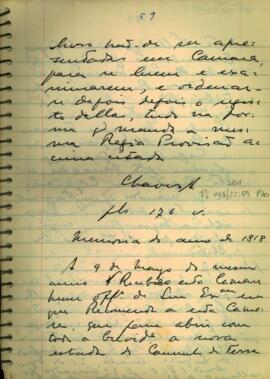 51
livros hão-de ser apre-
sentadas em Camara,
para se lerem e exa-
minarem, e ordenar-
se depois depois o regis-
to dellas, tudo na for-
ma q manda a mes-
ma Regia Provisão aci-
ma citada
Chaves
SBH
448/22:59 P30
fls 126 v.
Memoria do anno de 1818
A 9 de Março do mesmo
anno Recebeo esta Camara
hum off.º de Sua Ex.ma
em que Recomenda a esta Cama-
ra, que para abrir com
toda a brevidade a nova
estrada de Camina de Terra